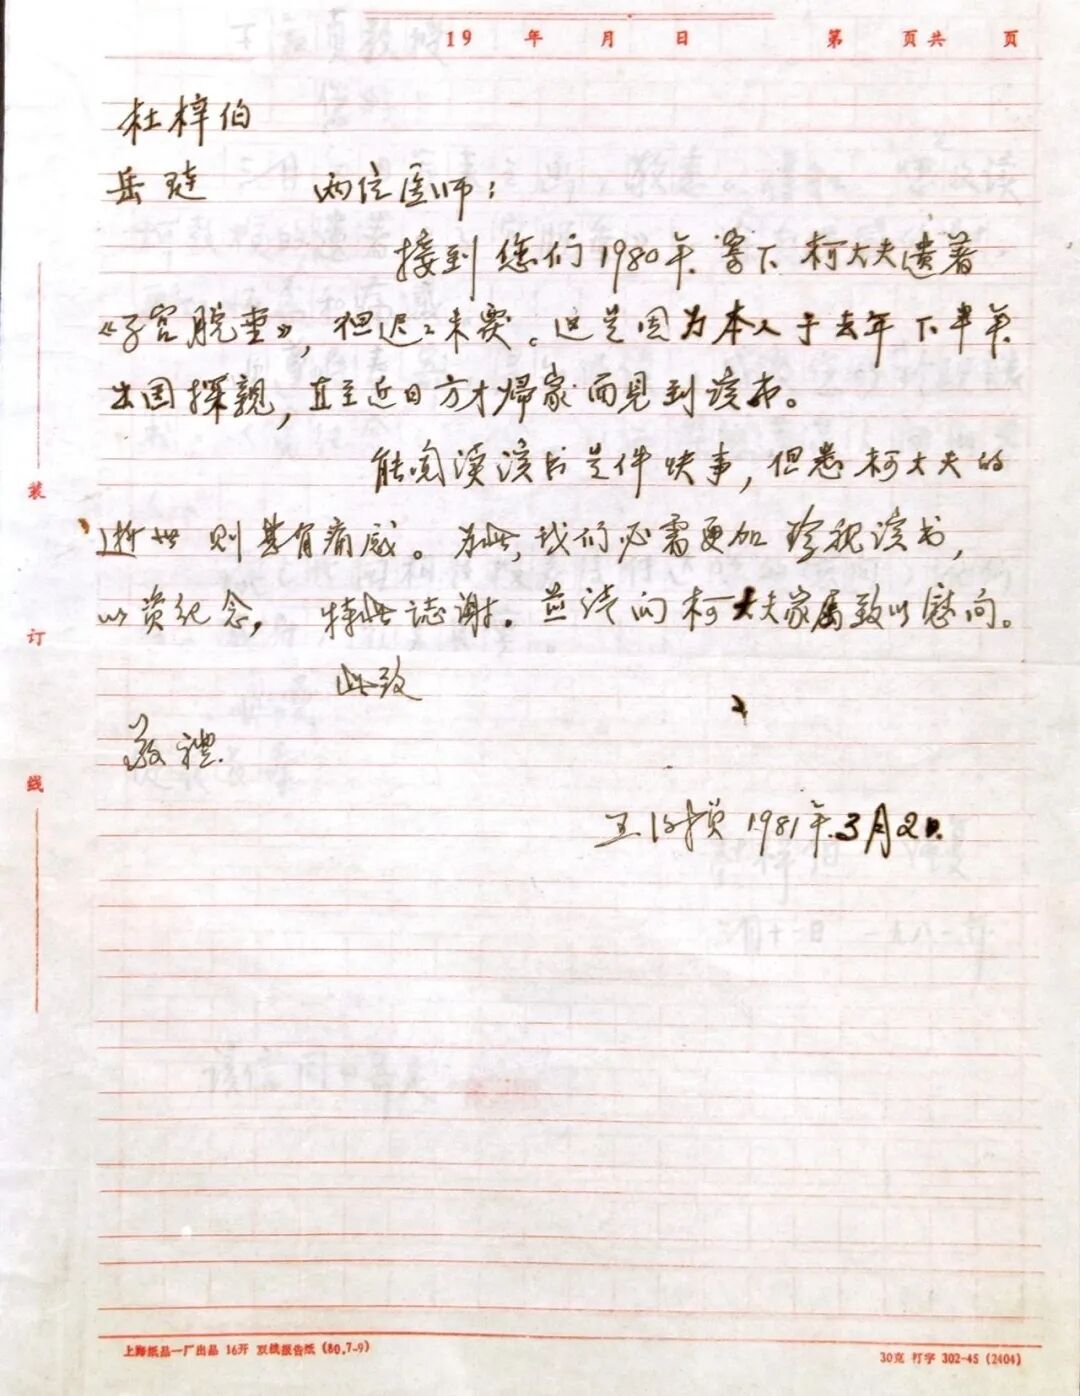 19 年 月 日 第 页共 页
杜梓伯
岳琏 两位医师：
接到您们1980年寄下柯大夫遗著
《子宫脱垂》，但迟迟未覆。这是因为本人于去年下半年
出国探親，直至近日方才帰家而见到该书。
能阅读该书是件快事，但悉柯大夫的
逝世则甚有痛感。为此，我们必需更加珍視该书，
以资纪念，特此誌谢。并请向柯大夫家属致以慰问。
此致
敬禮
王 1981年.3月2日.
装
订
线
上海纸品一厂出品 16开 双线报告纸 (80.7-9)
30克 打字 302-45 (2404)